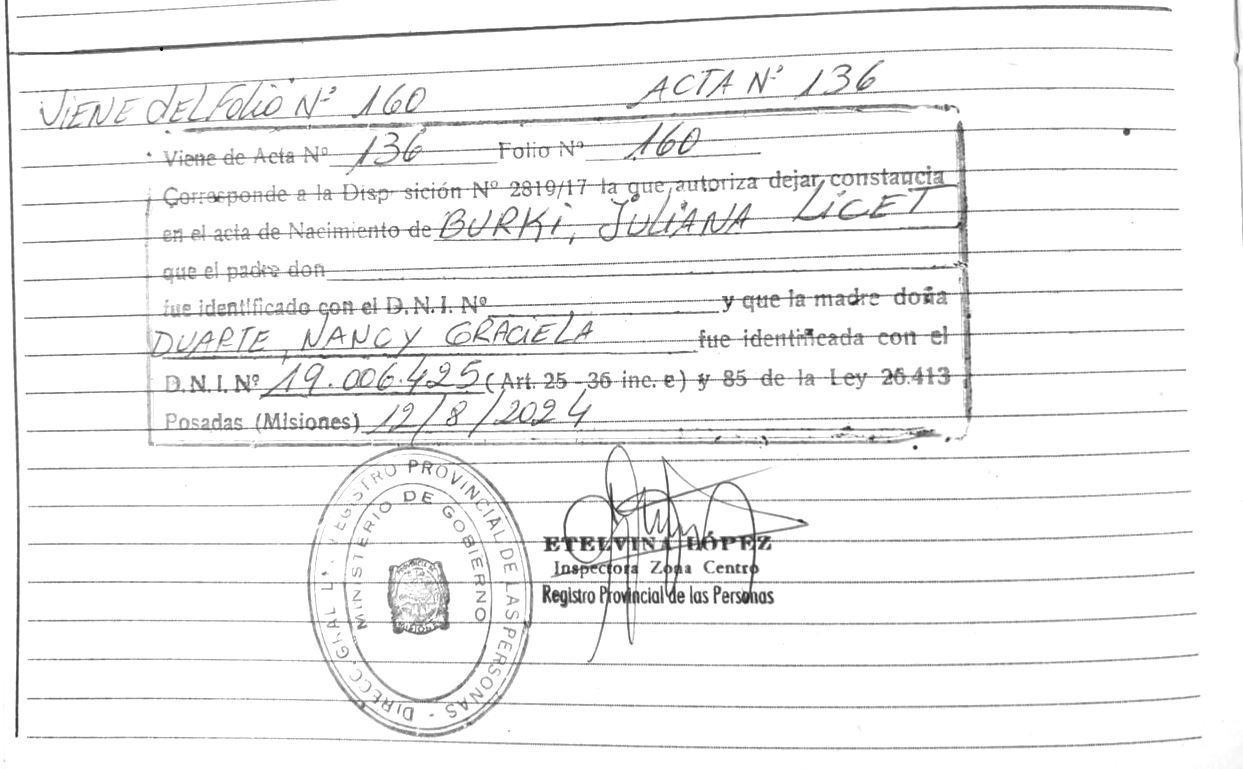 VIENE DEL FOLIO Nº 160 ACTA Nº 136
Viene de Acta Nº 136 Folio Nº 160
Corresponde a la Disp- sición Nº 2819/17 la que autoriza dejar constancia
en el acta de Nacimiento de BURKI, JULIANA LICET
que el padre don
fue identificado con el D.N.I. Nº y que la madre doña
DUARTE, NANCY GRACIELA fue identificada con el
D.N.I. Nº 19.006.425 (Art. 25 - 36 inc. e) y 85 de la Ley 26.413
Posadas (Misiones) 12/8/2024
REGISTRO PROVINCIAL DE LAS PERSONAS - DIRECC. GRAL.
MINISTERIO DE GOBIERNO
MISIONES
ETELVINA LÓPEZ
Inspectora Zona Centro
Registro Provincial de las Personas